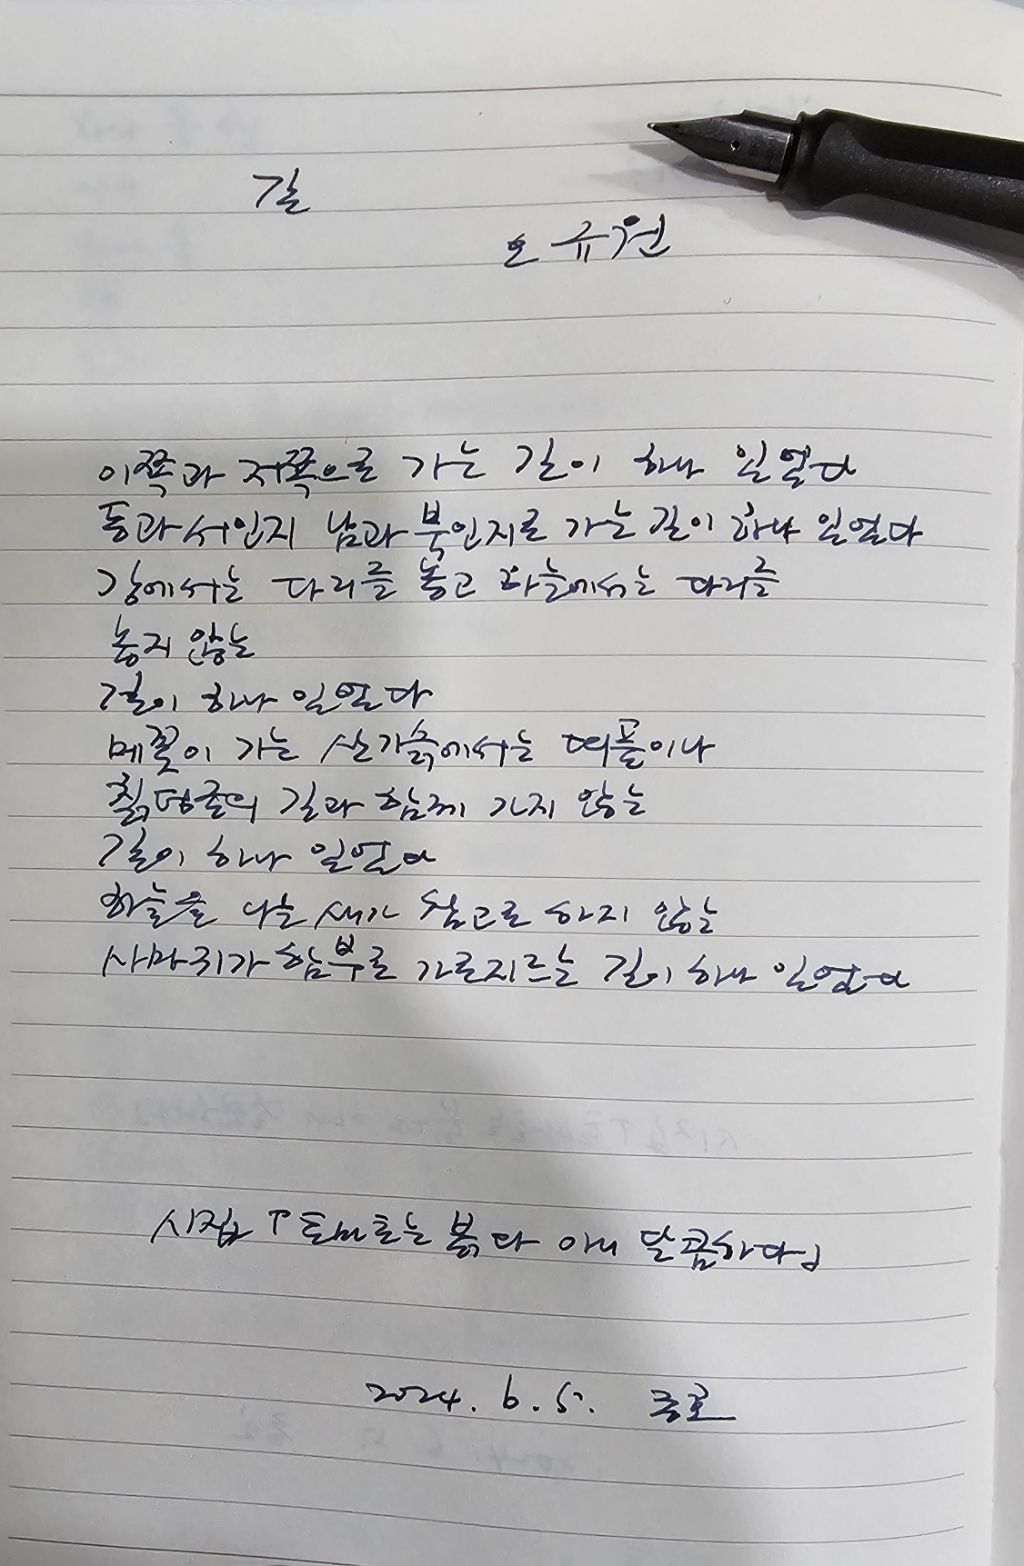 길
오규원
이쪽과 저쪽으로 가는 길이 하나 일엏다
동과 서인지 남과 북인지로 가는 길이 하나 일엏다
강에서는 다리를 놓고 하늘에서는 다리를
놓지 않는
길이 하나 있었다
메꽃이 가는 산기슭에서는 떠풀이나
칡덩굴의 길과 함께 가지 않는
길이 하나 있었다
하늘을 나는 새가 참고로 하지 않는
사마귀가 함부로 가로지르는 길이 하나 있었다
시집 『토마토는 붉다 아니 달콤하다』
2024. 6. 5.